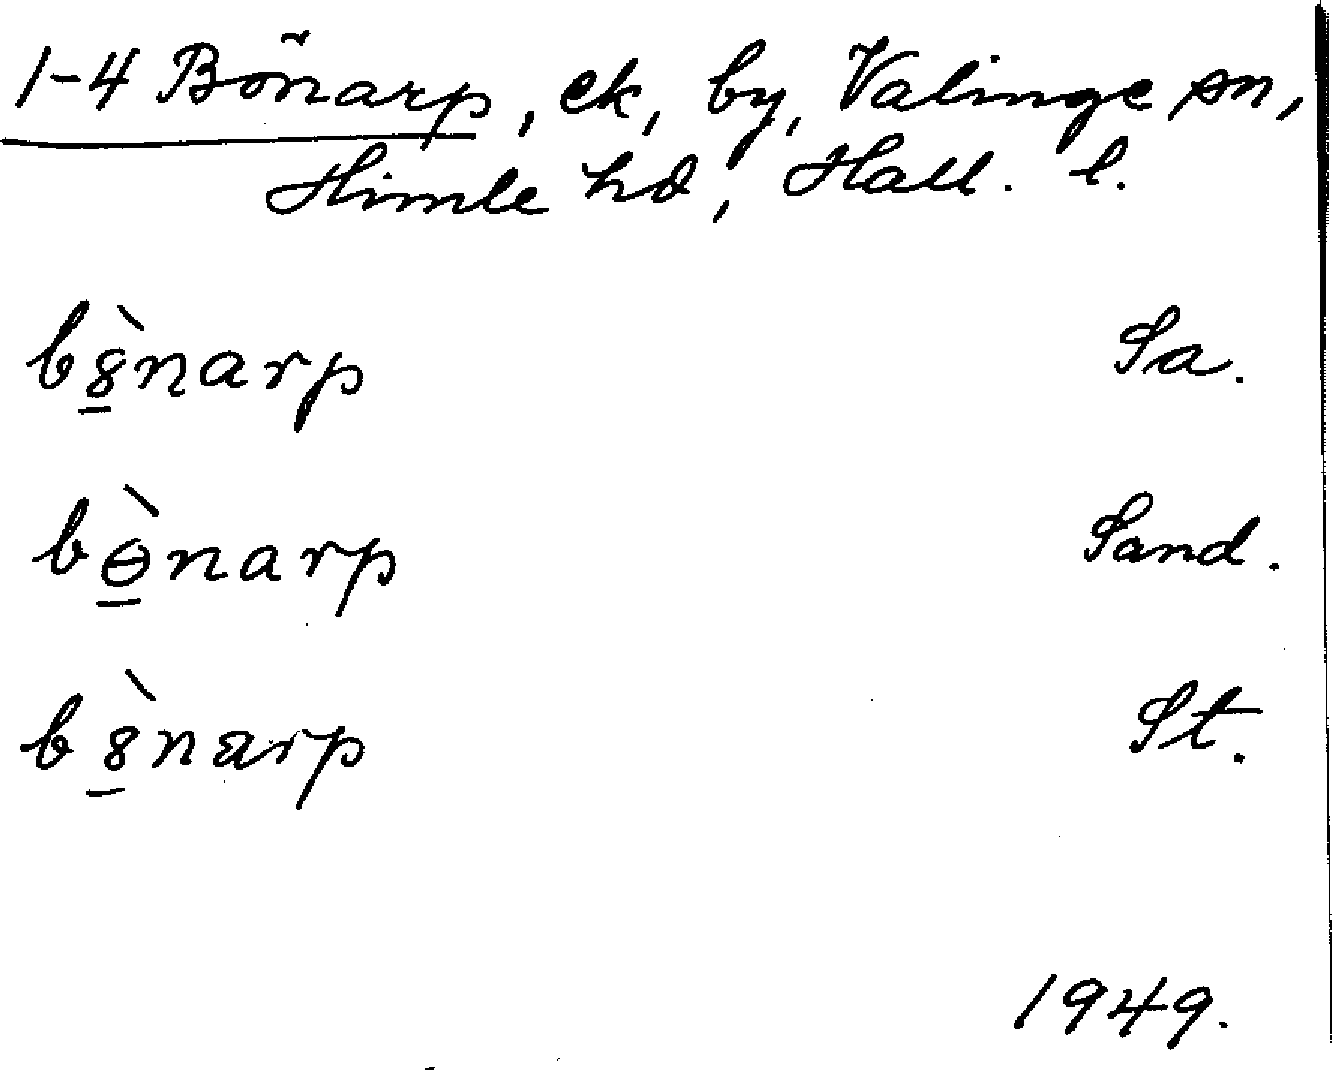 1-4 Bönarp, ek, by, Valinge sn,
Himle hd, Hall. l.
b8̲̀narp Sa.
bɵ̲̀narp Sand.
b8̲̀narp St.
1949.